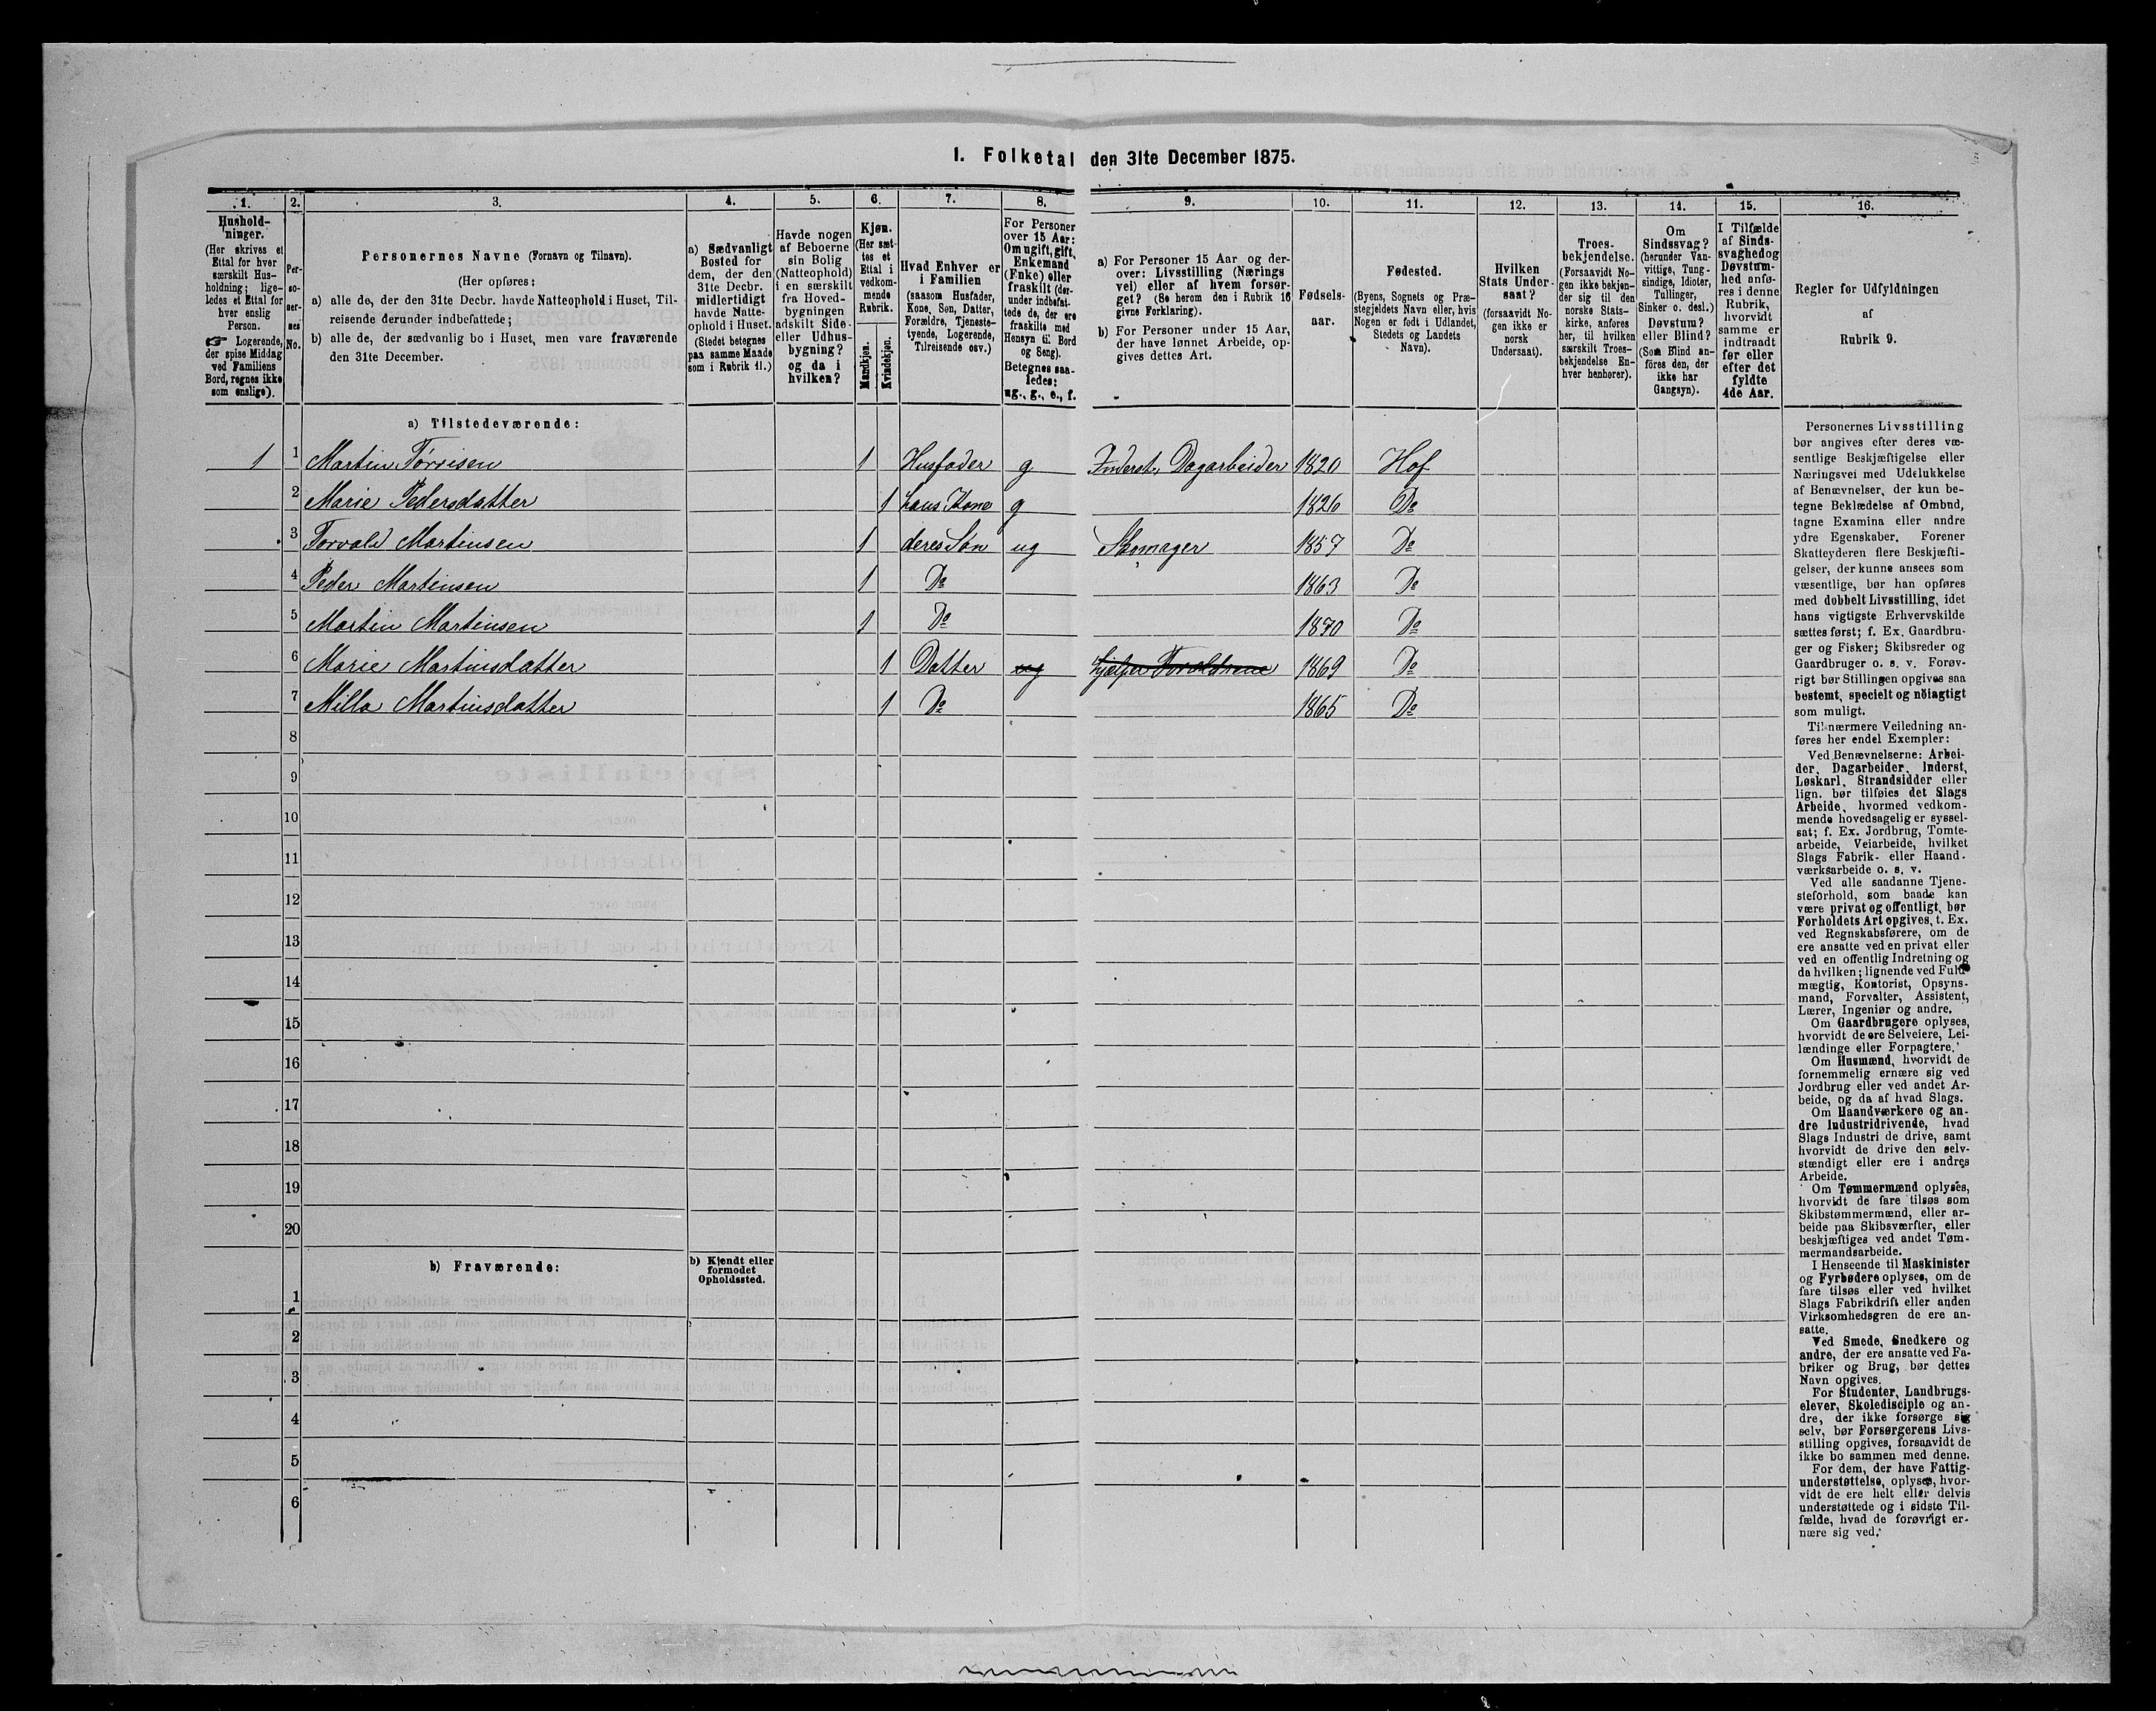 I. Folketal den 31te December 1875.
1. 2. 3. 4. 5. 6. 7. 8. 9. 10. 11. 12. 13. 14. 15. 16.
Hushold-
ninger.
(Her skrives et
Ettal for hver
særskilt Hus-
holdning; lige-
ledes et Ettal for
hver enslig
Person.
☞ Logerende,
der spise Middag
ved Familiens
Bord, regnes ikke
som enslige).
Per-
so-
ner-
nes
No.
Personernes Navne (Fornavn og Tilnavn).
(Her opføres:
a) alle de, der den 31te Decbr. havde Natteophold i Huset, Til-
reisende derunder indbefattede;
b) alle de, der sædvanlig bo i Huset, men vare fraværende
den 31te December.
a) Sædvanligt
Bosted for
dem, der den
31te Decbr.
midlertidigt
havde Natte-
ophold i Huset.
(Stedet betegnes
paa samme Maade
som i Rubrik 11.)
Havde nogen
af Beboerne
sin Bolig
(Natteophold)
i en særskilt
fra Hoved-
bygningen
adskilt Side-
eller Udhus-
bygning?
og da i
hvilken?
Kjøn.
(Her sæt-
tes et
Ettal i
vedkom-
mende
Rubrik.
Mandkjøn.
Kvindekjøn.
Hvad Enhver er
i Familien
(saasom Husfader,
Kone, Søn, Datter,
Forældre, Tjeneste-
tyende, Logerende,
Tilreisende osv.)
For Personer
over 15 Aar:
Om ugift, gift,
Enkemand
(Enke) eller
fraskilt (der-
under indbefat-
tede de, der ere
fraskilte med
Hensyn til Bord
og Seng).
Betegnes saa-
ledes:
ug., g., e., f.
a) For Personer 15 Aar og der-
over: Livsstilling (Nærings
vei) eller af hvem forsør-
get? (Se herom den i Rubrik 16
givne Forklaring).
b) For Personer under 15 Aar,
der have lønnet Arbeide, op-
gives dettes Art.
Fødsels-
aar.
Fødested.
(Byens, Sognets og Præ-
stegjeldets Navn eller, hvis
Nogen er født i Udlandet,
Stedets og Landets
Navn).
Hvilken
Stats Under-
saat?
(forsaavidt No-
gen ikke er
norsk
Undersaat).
Troes-
bekjendelse.
(Forsaavidt No-
gen ikke bekjen-
der sig til den
norske Stats-
kirke, anføres
her, til hvilken
særskilt Troes-
bekjendelse En-
hver henhører).
Om
Sindssvag?
(herunder Van-
vittige, Tung-
sindige, Idioter,
Tullinger,
Sinker o. desl.)
Døvstum?
eller Blind?
(Som Blind an-
føres den, der
ikke har
Gangsyn).
I Tilfælde
af Sinds-
svaghed og
Døvstum-
hed anfø-
res i denne
Rubrik,
hvorvidt
samme er
indtraadt
før eller
efter det
fyldte
4de Aar.
Regler for Udfyldningen
af
Rubrik 9.
a) Tilstedeværende:
1 1 Martin Törrisen 1 Husfader g Inderst, Dagarbeider 1820 Hof
2 Marie Pedersdatter 1 hans Kone g 1826 Do
3 Torvald Martinsen 1 deres Søn ug Skomager 1857 Do
4 Peder Martinsen 1 Do 1863 Do
5 Martin Martinsen 1 Do 1870 Do
6 Marie Martinsdatter 1 Datter ug hjelper Foreldrene 1869 Do
7 Milla Martinsdatter 1 Do 1865 Do
8
9
10
11
12
13
14
15
16
17
18
19
20
b) Fraværende:
b) Kjendt eller
formodet
Opholdssted.
1
2
3
4
5
6
Personernes Livsstilling
bør angives efter deres væ-
sentlige Beskjæftigelse eller
Næringsvei med Udelukkelse
af Benævnelser, der kun be-
tegne Beklædelse af Ombud,
tagne Examina eller andre
ydre Egenskaber. Forener
Skatteyderen flere Beskjæfti-
gelser, der kunne ansees som
væsentlige, bør han opføres
med dobbelt Livsstilling, idet
hans vigtigste Erhvervskilde
sættes først; f. Ex. Gaardbru-
ger og Fisker; Skibsreder og
Gaardbruger o. s. v. Forøv-
rigt bør Stillingen opgives saa
bestemt, specielt og nöiagtigt
som muligt.
Til nærmere Veiledning an-
føres her endel Exempler:
Ved Benævnelserne: Arbei-
der, Dagarbeider, Inderst,
Løskarl, Strandsidder eller
lign. bør tilføies det Slags
Arbeide, hvormed vedkom-
mende hovedsagelig er syssel-
sat; f. Ex. Jordbrug, Tomte-
arbeide, Veiarbeide, hvilket
Slags Fabrik- eller Haand-
værksarbeide o. s. v.
Ved alle saadanne Tjene-
steforhold, som baade kan
være privat og offentligt, bør
Forholdets Art opgives, t. Ex.
ved Regnskabsførere, om de
ere ansatte ved en privat eller
ved en offentlig Indretning og
da hvilken; lignende ved Fuld-
mægtig, Kontorist, Opsyns-
mand, Forvalter, Assistent,
Lærer, Ingeniør og andre.
Om Gaardbrugere oplyses,
hvorvidt de ere Selveiere, Lei-
lændinge eller Forpagtere.
Om Husmænd, hvorvidt de
fornemmelig ernære sig ved
Jordbrug eller ved andet Ar-
beide, og da af hvad Slags.
Om Haandværkere og an-
dre Industridrivende, hvad
Slags Industri de drive, samt
hvorvidt de drive den selv-
stændigt eller ere i andres
Arbeide.
Om Tømmermænd oplyses,
hvorvidt de fare tilsøs som
Skibstømmermænd, eller ar-
beide paa Skibsværfter, eller
beskjæftiges ved andet Tøm-
mermandsarbeide.
I Henseende til Maskinister
og Fyrbødere oplyses, om de
fare tilsøs eller ved hvilket
Slags Fabrikdrift eller anden
Virksomhedsgren de ere an-
satte.
Ved Smede, Snedkere og
andre, der ere ansatte ved Fa-
briker og Brug, bør dettes
Navn opgives.
For Studenter, Landbrugs-
elever, Skoledisciple og an-
dre, der ikke forsørge sig
selv, bør Forsørgerens Livs-
stilling opgives, forsaavidt de
ikke bo sammen med denne.
For dem, der have Fattig-
understøttelse, oplyses, hvor-
vidt de ere helt eller delvis
understøttede og i sidste Til-
fælde, hvad de forøvrigt er-
nære sig ved.